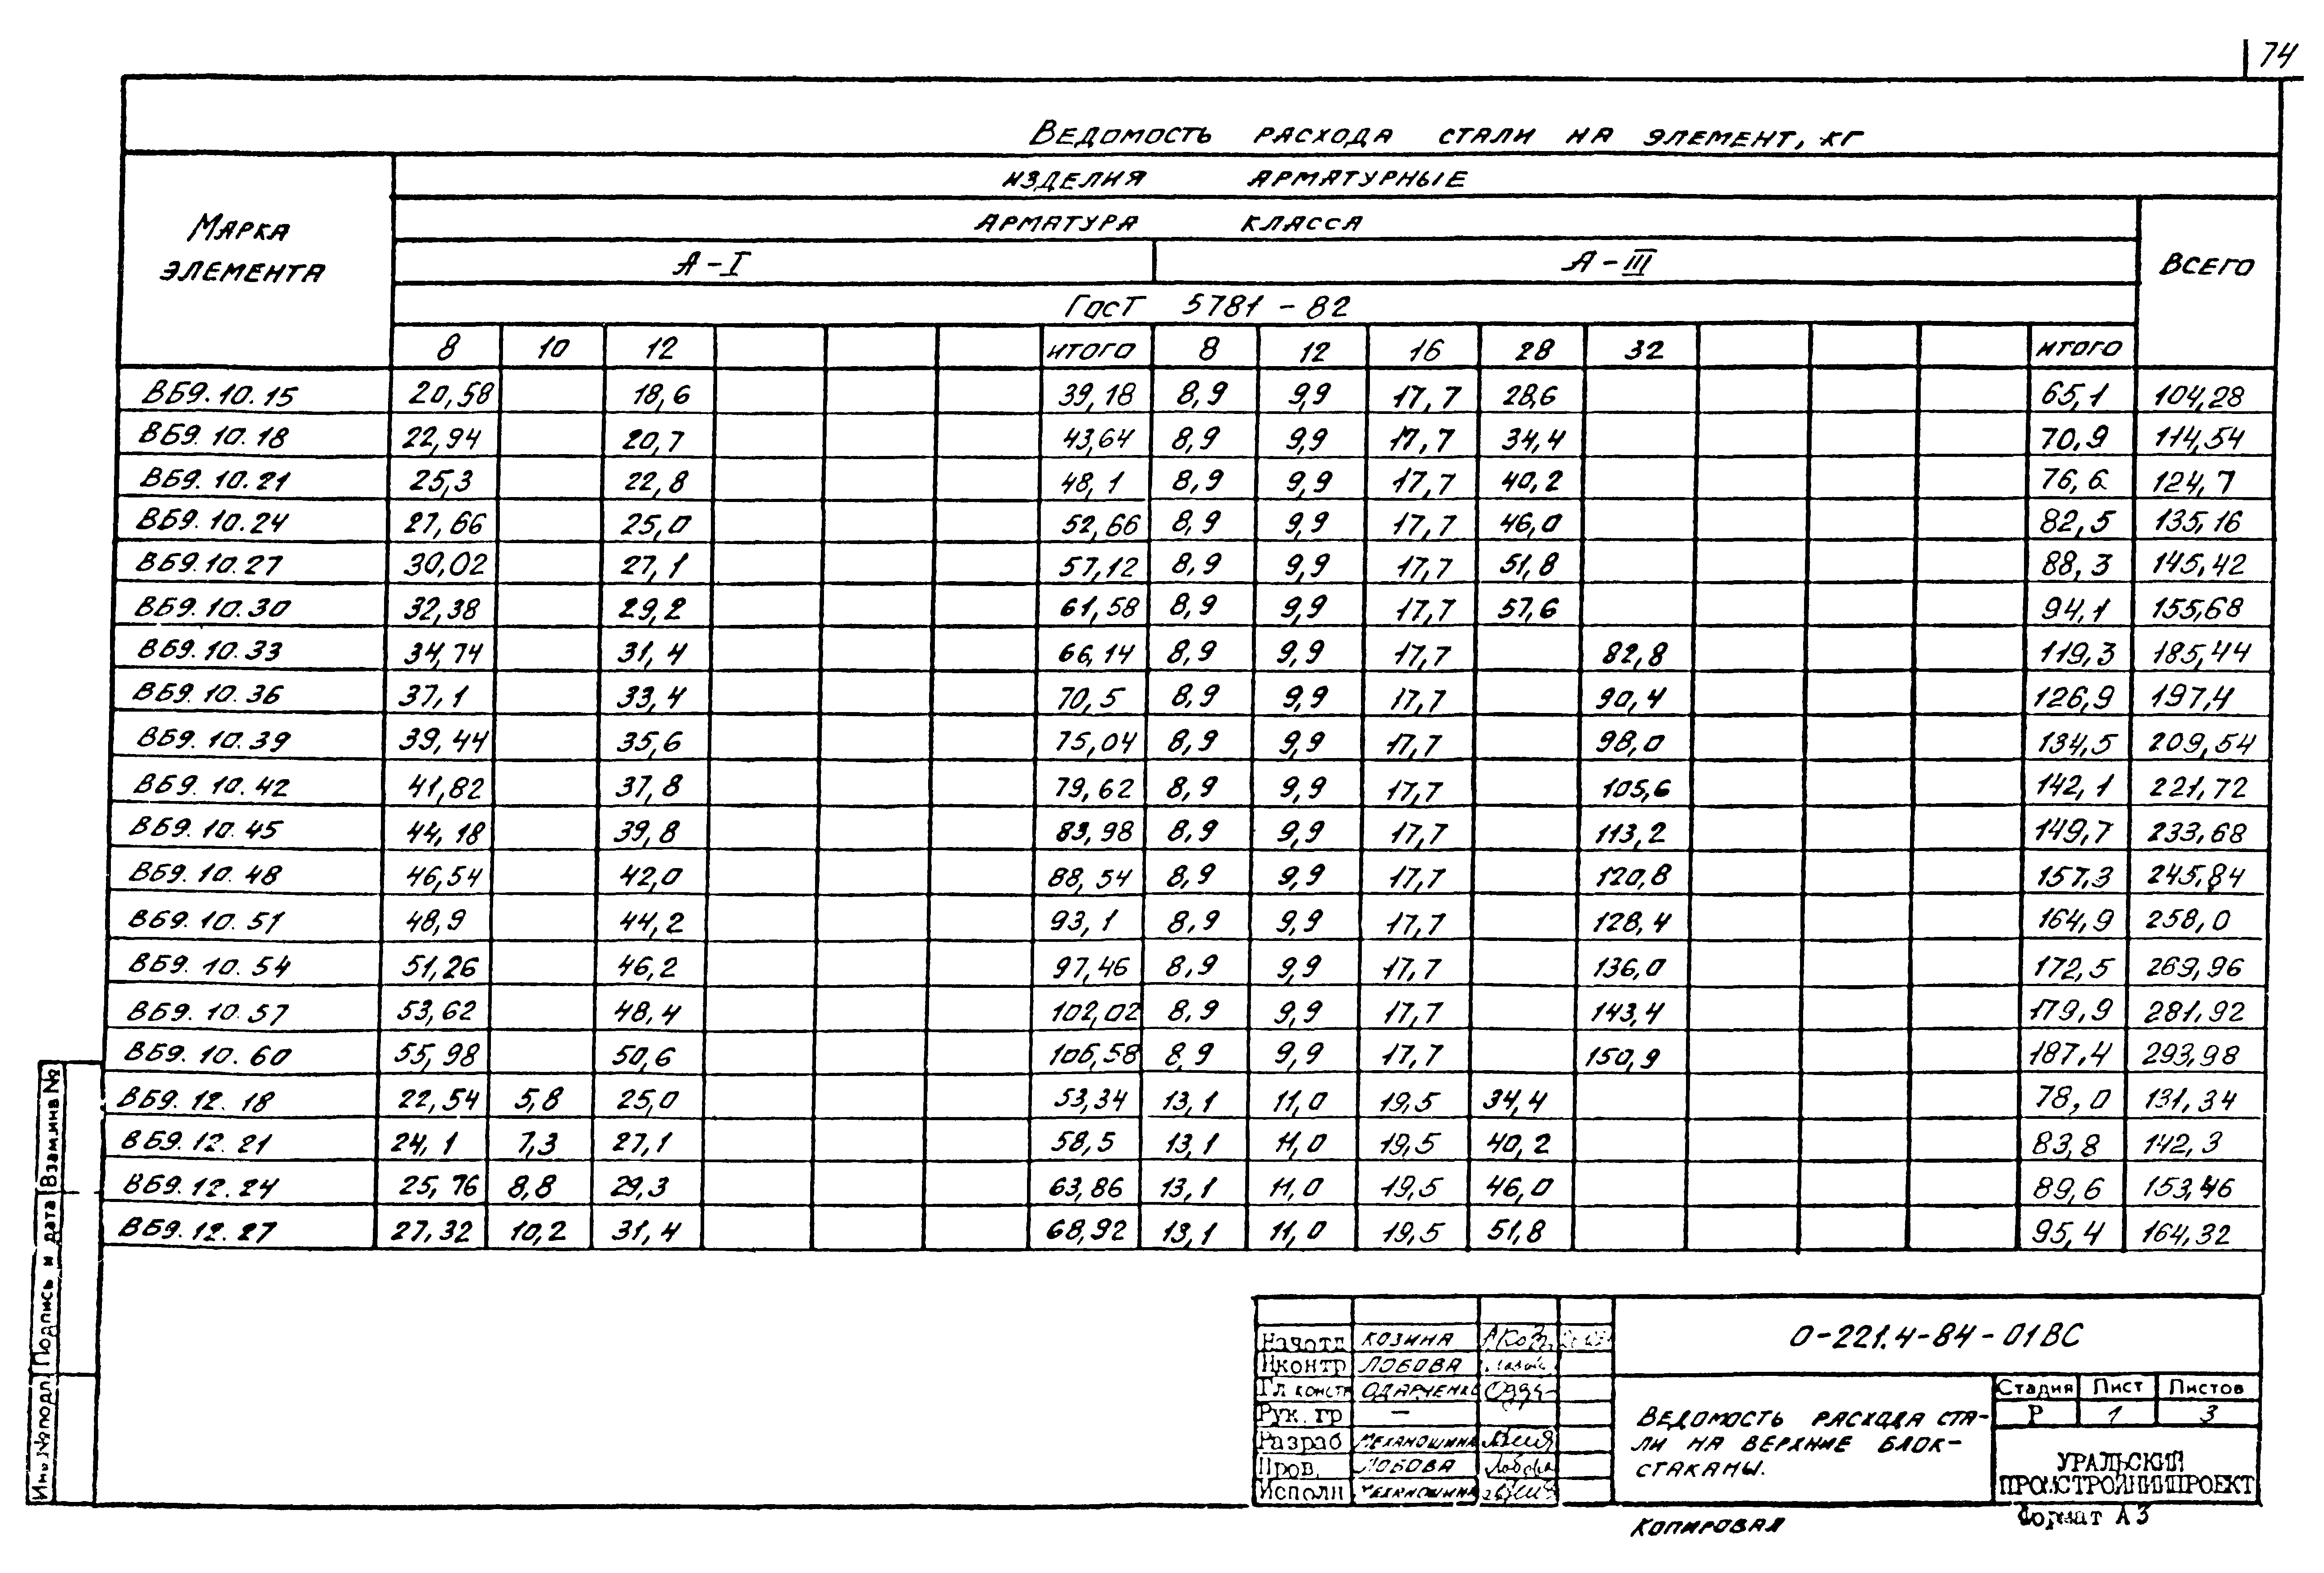 74
Ведомость расхода стали на элемент, кг
Марка элемента
изделия арматурные
арматура класса
А-I А-III Всего
Гост 5781-82
8 10 12 итого 8 12 16 28 32 итого
ВБ9.10.15 20,58 18,6 39,18 8,9 9,9 17,7 28,6 65,1 104,28
ВБ9.10.18 22,94 20,7 43,64 8,9 9,9 17,7 34,4 70,9 114,54
ВБ9.10.21 25,3 22,8 48,1 8,9 9,9 17,7 40,2 76,6 124,7
ВБ9.10.24 27,66 25,0 52,66 8,9 9,9 17,7 46,0 82,5 135,16
ВБ9.10.27 30,02 27,1 57,12 8,9 9,9 17,7 51,8 88,3 145,42
ВБ9.10.30 32,38 29,2 61,58 8,9 9,9 17,7 57,6 94,1 155,68
ВБ9.10.33 34,74 31,4 66,14 8,9 9,9 17,7 82,8 119,3 185,44
ВБ9.10.36 37,1 33,4 70,5 8,9 9,9 17,7 90,4 126,9 197,4
ВБ9.10.39 39,44 35,6 75,04 8,9 9,9 17,7 98,0 134,5 209,54
ВБ9.10.42 41,82 37,8 79,62 8,9 9,9 17,7 105,6 142,1 221,72
ВБ9.10.45 44,18 39,8 83,98 8,9 9,9 17,7 113,2 149,7 233,68
ВБ9.10.48 46,54 42,0 88,54 8,9 9,9 17,7 120,8 157,3 245,84
ВБ9.10.51 48,9 44,2 93,1 8,9 9,9 17,7 128,4 164,9 258,0
ВБ9.10.54 51,26 46,2 97,46 8,9 9,9 17,7 136,0 172,5 269,96
ВБ9.10.57 53,62 48,4 102,02 8,9 9,9 17,7 143,4 179,9 281,92
ВБ9.10.60 55,98 50,6 106,58 8,9 9,9 17,7 150,9 187,4 293,98
ВБ9.12.18 22,54 5,8 25,0 53,34 13,1 11,0 19,5 34,4 78,0 131,34
ВБ9.12.21 24,1 7,3 27,1 58,5 13,1 11,0 19,5 40,2 83,8 142,3
ВБ9.12.24 25,76 8,8 29,3 63,86 13,1 11,0 19,5 46,0 89,6 153,46
ВБ9.12.27 27,32 10,2 31,4 68,92 13,1 11,0 19,5 51,8 95,4 164,32
Инв.№подл. Подпись и дата Взам.инв №
Начотд Козина
Нконтр Лобова
Гл констр Одарченко
Рук. гр —
Разраб Механошина
Пров. Лобова
Исполн Механошина
0-221.4-84-01ВС
Ведомость расхода ста-
ли на верхние блок-
стаканы.
Стадия Лист Листов
Р 1 3
УРАЛЬСКИЙ
ПРОМСТРОЙНИИПРОЕКТ
Копировал
Формат А3